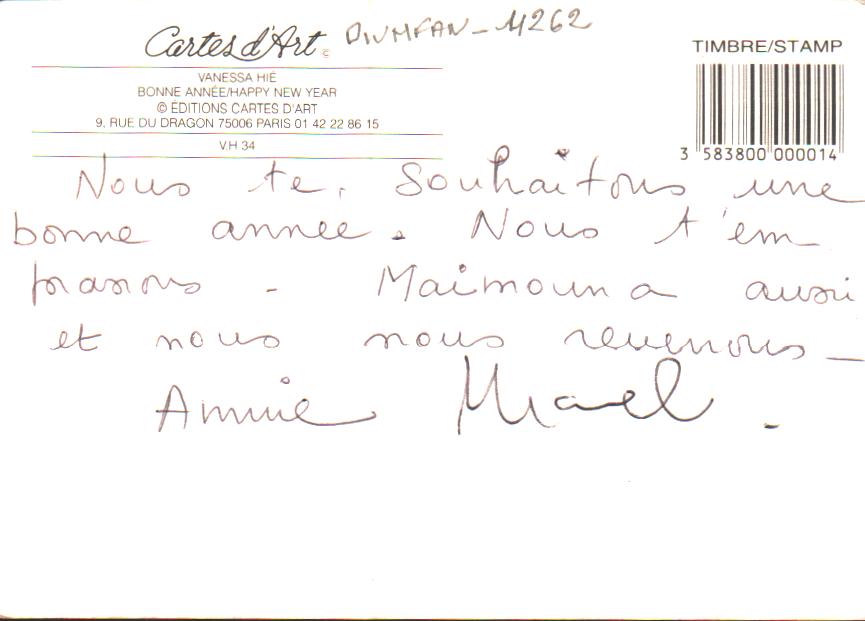 Cartes d'Art © DIVMFAN - 4262
TIMBRE/STAMP
VANESSA HIÉ
BONNE ANNÉE/HAPPY NEW YEAR
© ÉDITIONS CARTES D'ART
9, RUE DU DRAGON 75006 PARIS 01 42 22 86 15
V.H 34
3 583800 000014
Nous te, souhaitons une
bonne annee. Nous t'em
brassons - Maimouna aussi
et nous nous revenons -
Annie